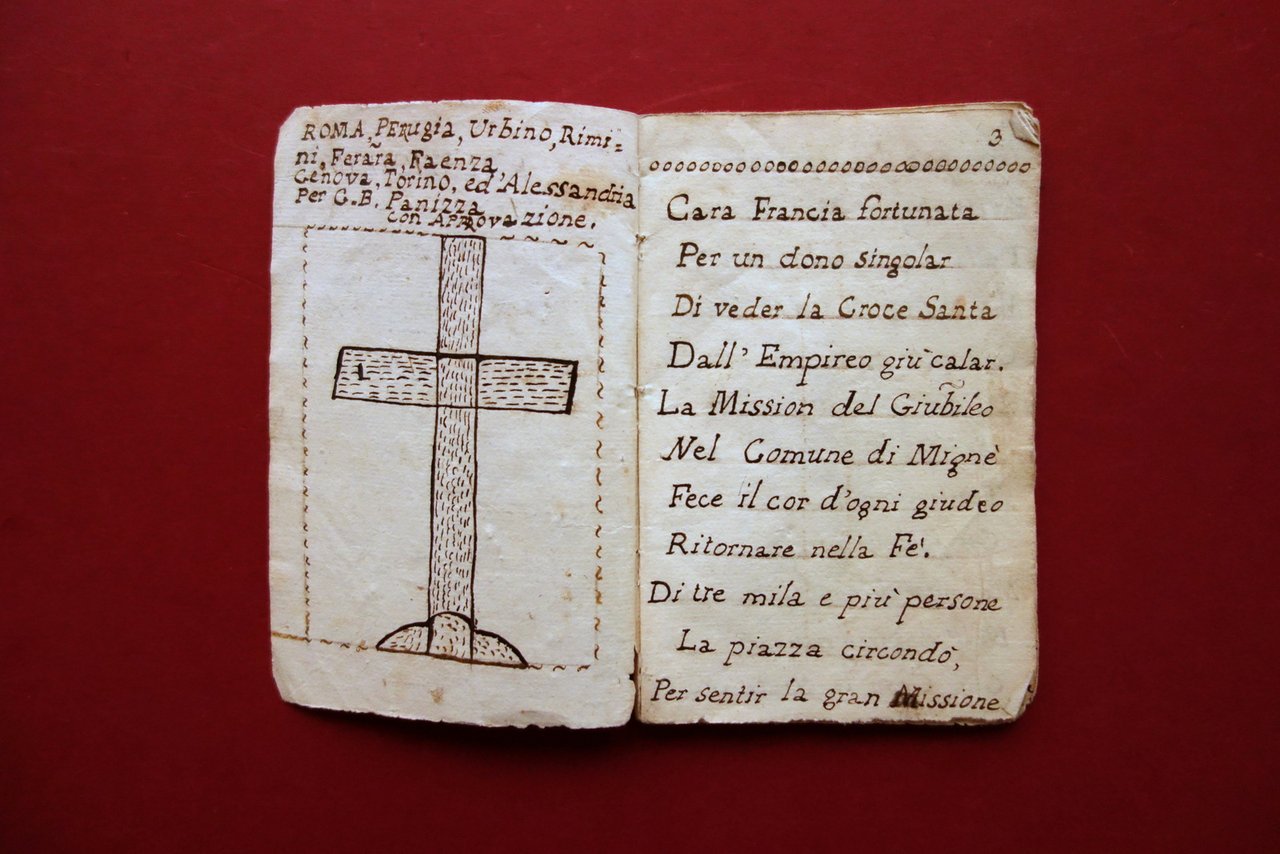 ROMA, PERugia, Urbino, Rimi=
ni, Ferara, Faenza
Genova, Torino, ed' Alessandria
Per G.B. Panizza
con APRovazione.
3
Cara Francia fortunata
Per un dono singolar
Di veder la Croce Santa
Dall' Empireo giù calar.
La Mission del Giubileo
Nel Comune di Mignè
Fece il cor d'ogni giudeo
Ritornare nella Fe'.
Di tre mila e più persone
La piazza circondò,
Per sentir la gran Missione